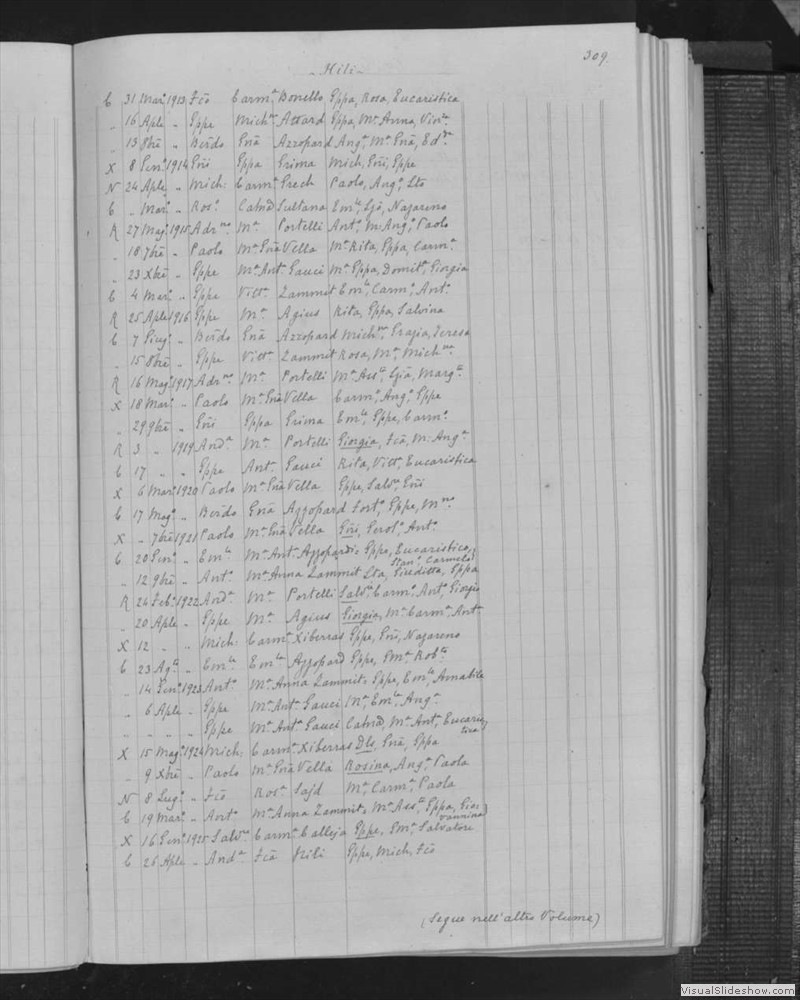 309.
- Hili -
C 31 Mar. 1913 Fcõ Carmª Bonello Eppa, Rosa, Eucaristica
" 16 Aple " Eppe Michna Attard Eppa, Mª Anna, Vinc.
" 13 8bre " Berdo Gnã Azzopard Angª, Mª Gnã, Edda
X 8 Genº 1914 Gni Eppa Grima Mich, Gni, Eppe
N 24 Aple " Mich: Carmª Grech Paolo, Angº,
C " Mar. " Rosº Catnã Sultana Emle, Nazareno
R 27 Magº 1915 Adrno Mª Portelli Antª, M. Angª, Paolo
" 18 7bre " Paolo Mª Gnã Vella Mª Rita, Eppa, Carmª
" 23 Xbre " Eppe Mª Antª Gauci Mª Eppa, Giorgia
C 4 Mar. " Eppe Vittª Zammit Emle, Carmº, Antº
R 25 Aple 1916 Eppe Mª Agius Rita, Eppa, Salvina
C 7 Giugº " Berdo Gnã Azzopard Michna, Grazia, Teresa
" 15 8bre " Eppe Vittª Zammit Rosa, Mª, Michna
R 16 Magº 1917 Adrno Mª Portelli Mª Assta, Margta
X 18 Mar. " Paolo Mª Gnã Vella Carmº, Angº, Eppe
" 29 9bre " Gni Eppa Grima Emle, Eppe, Carmº
R 3 " 1919 Andª Mª Portelli Giorgia, Fcã, M. Angª
C 17 " " Eppe Antª Gauci Rita, Vittª, Eucaristica
X 6 Mar. 1920 Paolo Mª Gnã Vella Eppe, Salvº, Gni
C 17 Magº " Berdo Gnã Azzopard Fortº, Eppe, Mno
X " 7bre 1921 Paolo Mª Gnã Vella Gni, Gerolº, Antº
C 20 Genº " Emle Mª Antª Azzopardi Eppe, Eucaristico, Carmelo
" 12 9bre " Antº Mª Anna Zammit Giuditta, Eppa
R 24 Febº 1922 Andª Mª Portelli Salvº, Carmº, Antº, Giorgio
" 20 Aple " Eppe Mª Agius Giorgia, Mª Carmª, Antª
X 12 " " Mich: Carmª Xiberras Eppe, Gni, Nazareno
C 23 Agto " Emle Emla Azzopard Eppe, Emº, Robto
" 14 Genº 1923 Antº Mª Anna Zammit Eppe, Emle, Amabile
" 6 Aple " Eppe Mª Antª Gauci Mª, Emla, Angª
" " " " Eppe Mª Antª Gauci Catnã, Mª Antª, Eucaristica
X 15 Magº 1924 Mich: Carmª Xiberras Dls, Gnã, Eppa
" 9 Xbre " Paolo Mª Gnã Vella Rosina, Angª, Paola
N 8 Lugº " Fcõ Rosª Sajd Mª, Carmª, Paola
C 19 Mar. " Antº Mª Anna Zammit Mª Assta, Eppa, Giovannina
X 16 Genº 1925 Salvre Carmª Calleja Eppe, Emº, Salvatore
C 26 Aple " Andª Fcã Hili Eppe, Mich, Fcõ
(Segue nell'altro Volume)
VisualSlideshow.com